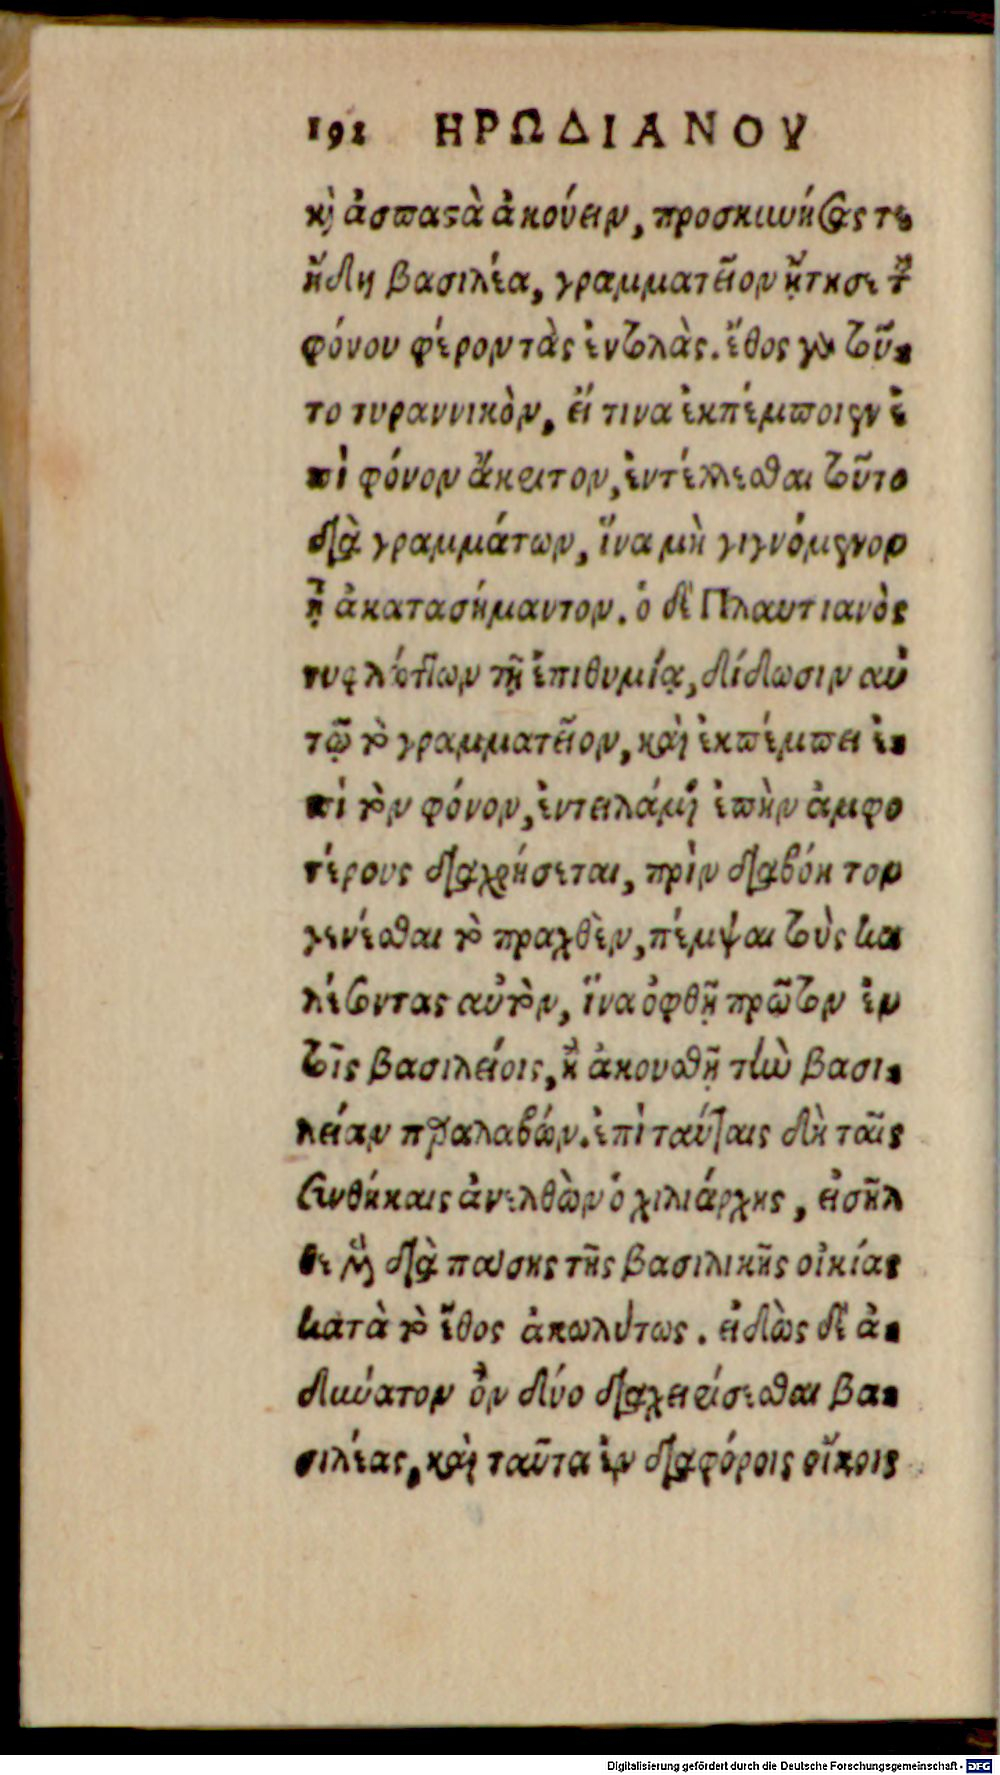 192 ΗΡΩΔΙΑΝΟΥ
κὶ ἀσπαστὰ ἀκούειν, προσκυνήσας τε
ἤδη βασιλέα, γραμματεῖον ᾔτησε τ
φόνου φέρον τὰς ἐντολάς. ἔθος γὰρ τοῦ-
το τυραννικὸν, εἴ τινα ἐκπέμποιεν ἐ
πὶ φόνον ἄκριτον, ἐντέλλεσθαι τοῦτο
διὰ γραμμάτων, ἵνα μὴ γιγνόμενον
ᾖ ἀκατασήμαντον. ὁ δὲ Πλαυτιανὸς
τυφλώττων τῇ ἐπιθυμίᾳ, δίδωσιν αὐ
τῷ τὸ γραμματεῖον, καὶ ἐκπέμπει ἐ-
πὶ τὸν φόνον, ἐντειλάμενος ἐπὴν ἀμφο
τέρους διαχρήσεται, πρὶν διαβόητον
γενέσθαι τὸ πραχθὲν, πέμψαι τοὺς κα
λέσοντας αὐτὸν, ἵνα ὀφθῇ πρῶτον ἐν
τοῖς βασιλείοις, ἢ ἀκουσθῇ τὴν βασι-
λείαν προαλαβών. ἐπὶ ταύταις δὴ ταῖς
συνθήκαις ἀνελθὼν ὁ χιλιάρχης, εἰσῆλ
θε μὲν διὰ πάσης τῆς βασιλικῆς οἰκίας
κατὰ τὸ ἔθος ἀκωλύτως. εἰδὼς δὲ ἀ-
δύνατον ὂν δύο διαχειρίσεσθαι βα-
σιλέας, καὶ ταῦτα ἐν διαφόροις οἴκοις
Digitalisierung gefördert durch die Deutsche Forschungsgemeinschaft - DFG